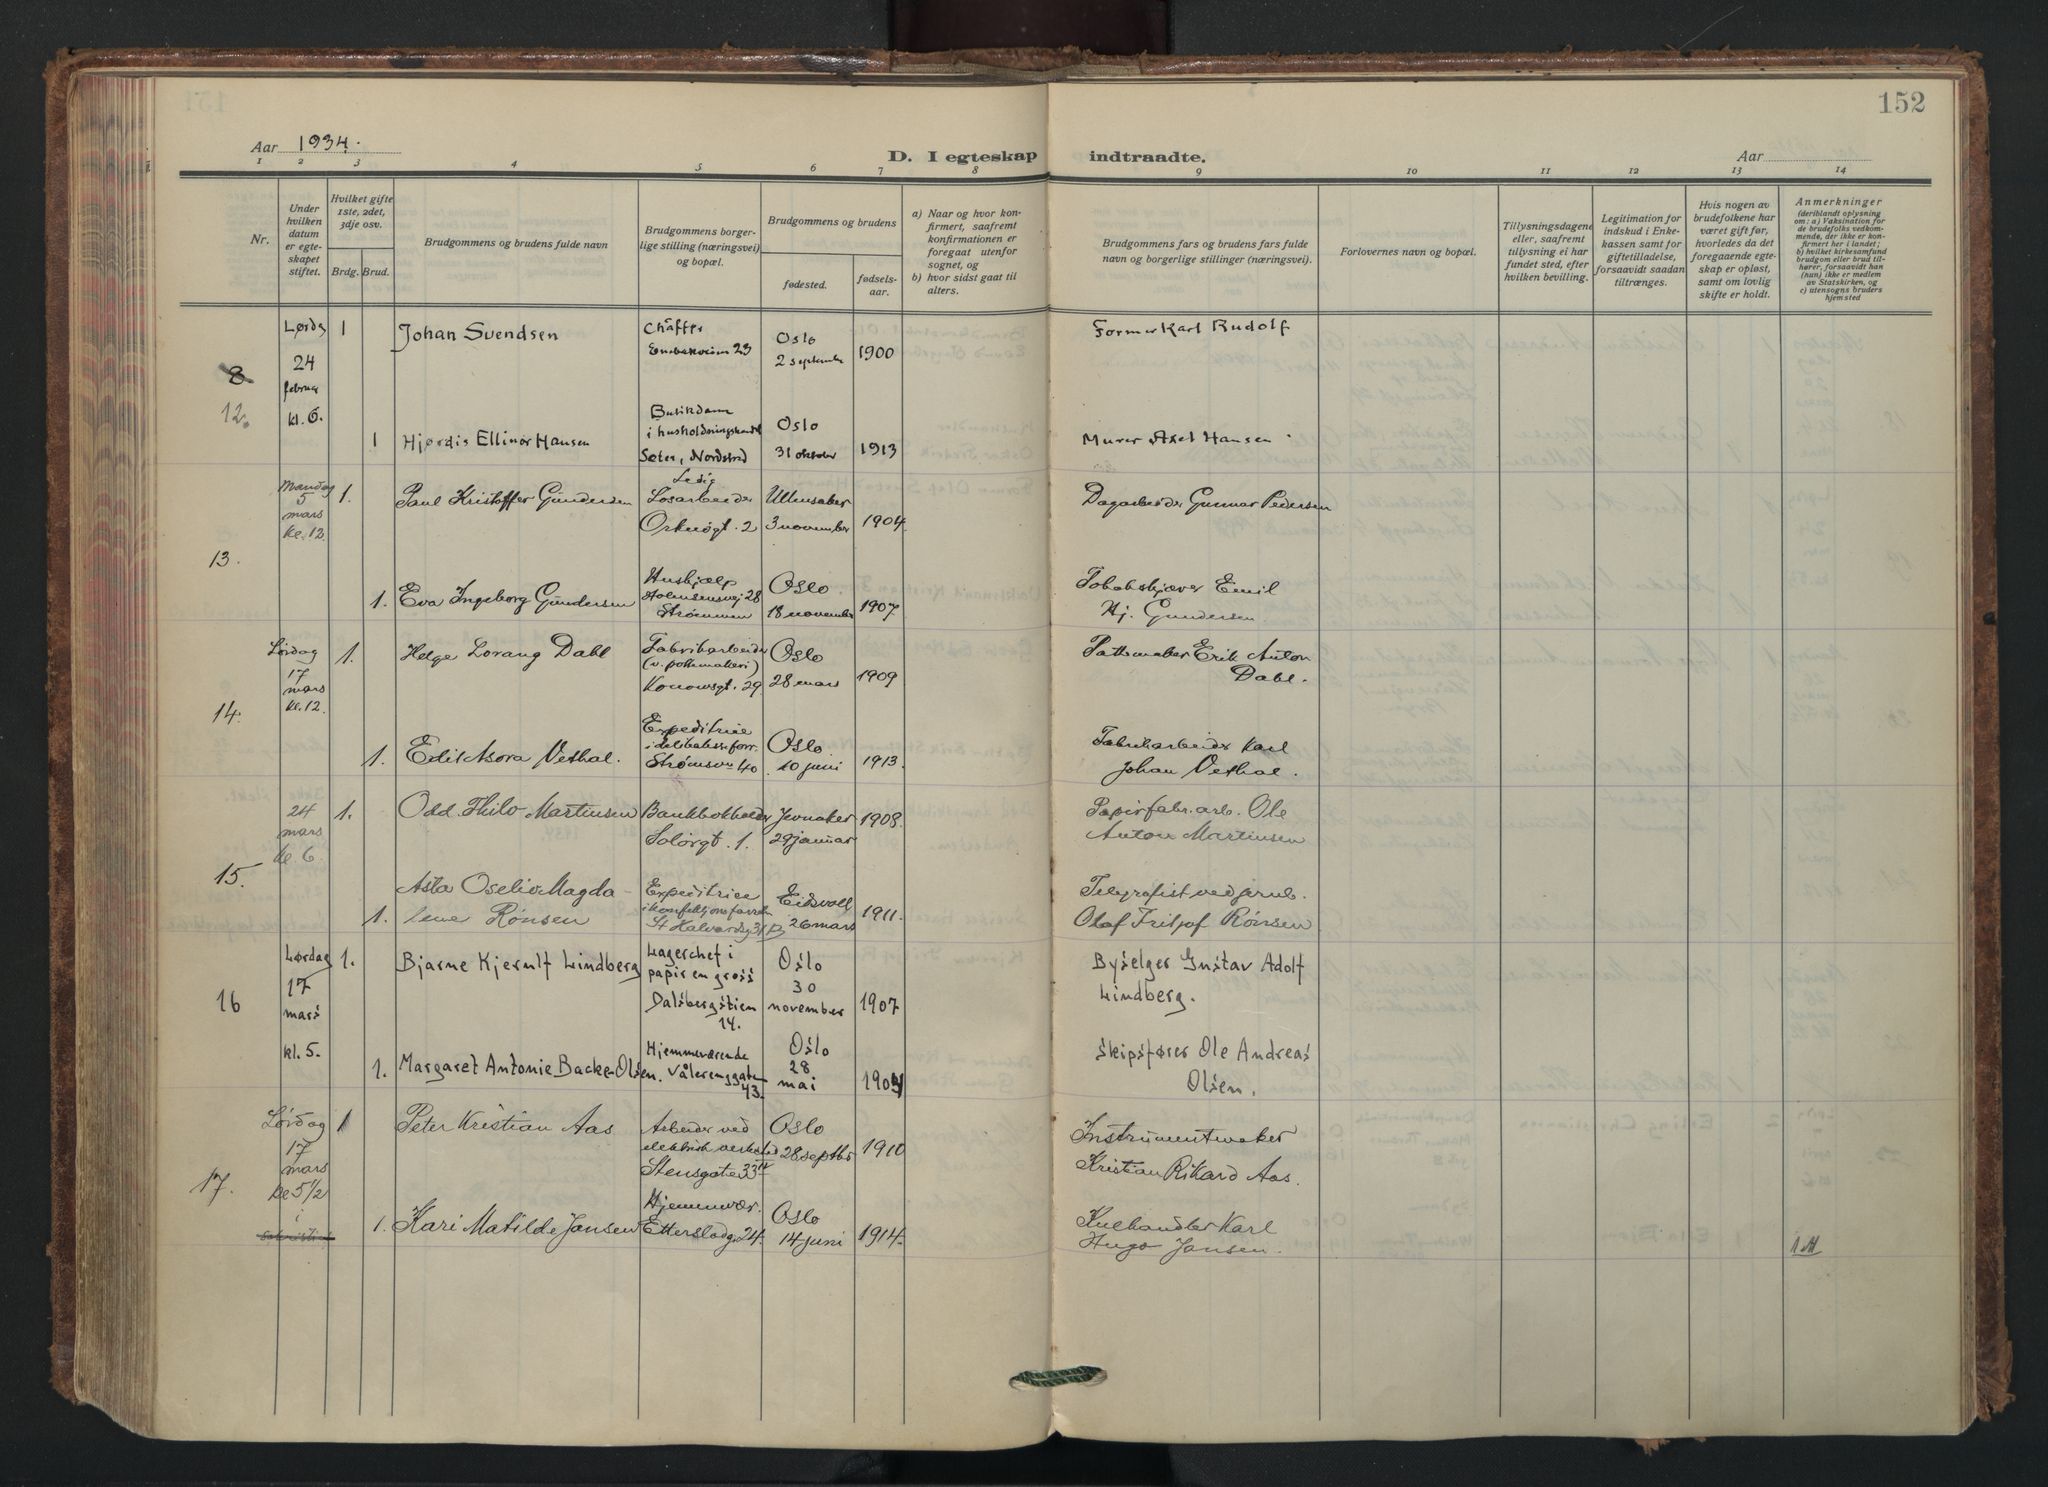 152
Aar 1934.
D. I egteskap
indtraadte.
Aar
1 2 3 4 5 6 7 8 9 10 11 12 13 14
Nr.
Under hvilken datum er egte-skapet stiftet.
Hvilket gifte 1ste, 2det, 3dje osv.
Brdg. Brud.
Brudgommens og brudens fulde navn
Brudgommens borger-lige stilling (næringsvei) og bopæl.
Brudgommens og brudens
fødested.
fødsels-aar.
a) Naar og hvor kon-firmert, saafremt konfirmationen er foregaat utenfor sognet, og
b) hvor sidst gaat til alters.
Brudgommens fars og brudens fars fulde navn og borgerlige stillinger (næringsvei).
Forlovernes navn og bopæl.
Tillysningsdagene eller, saafremt tillysning ei har fundet sted, efter hvilken bevilling.
Legitimation for indskud i Enke-kassen samt for giftetilladelse, forsaavidt saadan tiltrænges.
Hvis nogen av brudefolkene har været gift før, hvorledes da det foregaaende egte-skap er opløst, samt om lovlig skifte er holdt.
Anmerkninger
(deriblandt oplysning om: a) Vaksination for de brudefolks vedkom-mende, der ikke er kon-firmert her i landet; b) hvilket kirkesamfund brudgom eller brud til-hører, forsaavidt han (hun) ikke er medlem av Statskirken, og c) utensogns bruders hjemsted
8
12.
Lørdg
24
februar
kl. 6.
1
Johan Svendsen
23
Oslo
2 september
1900
Former Karl Rudolf
1
Hjørdis Ellinor Hansen
Butikdame
i husholdningshandel
Sæter, Nordstrd
Oslo
31 oktober
1913
Murer Axel Hansen
13.
Mandag
5
mars
kl. 12
1.
Paul Kristoffer Gundersen
Ledig
Løsarbeider
Orknøgt. 2
Ullensaker
3 november
1904.
Dagarbeider Gunnar Pedersen
1.
Eva Ingeborg Gundersen
Hushjælp
Holmsensvej 28
Strømmen
Oslo
18 november
1907
Emil
Hj. Gundersen
14.
Lørdag
17
mars
kl. 12.
1.
Helge Lorang Dahl
Fabrikarbeider
(v. pottemakeri)
Konowsgt. 29
Oslo
28 mars
1909
Pottemaker Erik Anton
Dahl.
1.
Edit Asora Vethal.
Expeditrice
i delikatesseforr.
Strømsvn 40
Oslo
10 juni
1913.
Fabrikarbeider Karl
Johan Vethal.
15.
24
mars
kl. 6.
1.
Odd Thilo Martinsen
Bankbokholder
Solørgt. 1.
Jevnaker
29 januar
1908.
Papirfabr.arb. Ole
Anton Martinsen
1.
Asta Oselie Magda-
lene Rønsen
Expeditrice
i konfektjonsforretn
St Halvardsg 31 B
Eidsvoll
26 mars
1911.
Telegrafist ved jernb.
Olaf Fritjof Rønsen
16
Lørdag
17
mars
kl. 5.
1.
Bjarne Kjerulf Lindberg
Lagerchef i
papir en gross
Dalsbergstien
14.
Oslo
30
november
1907
Byselger Gustav Adolf
Lindberg.
1.
Margaret Antonie Backe-Olsen.
Hjemmeværende
Vålerenggaten
43.
Oslo
28
mai
Skipsfører Ole Andreas
Olsen.
17.
Lørdag
17
mars
kl 5 1/2
i
sakristiet
1
Peter Kristian Aas
Arbeider ved
elektrisk verksted
Stensgate 33 IV
Oslo
28 septbr
1910
Instrumentmaker
Kristian Rikard Aas.
1.
Kari Matilde Jansen
Hjemmevær.
Etterstadg. 24.
Oslo
14 juni
1914.
Kulhandler Karl
Hugo Jansen.